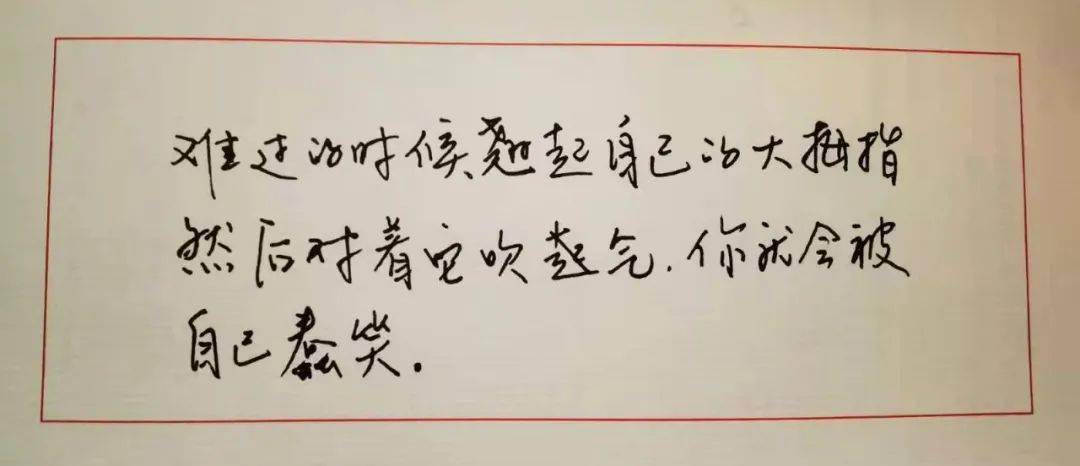 难过的时候翘起自己的大拇指
然后对着它吹起气.你就会被
自己蠢笑.